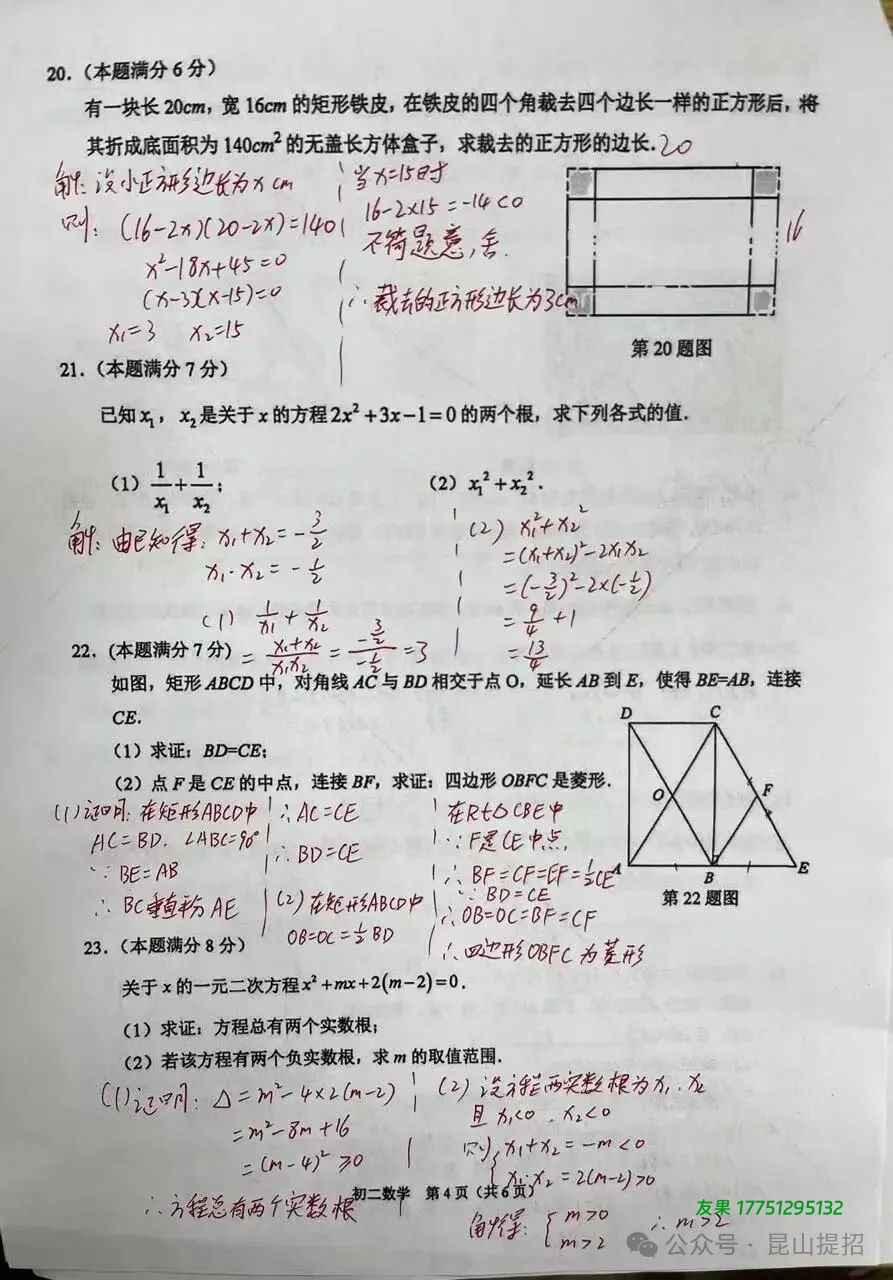 20.（本题满分6分）
有一块长20cm，宽16cm的矩形铁皮，在铁皮的四个角裁去四个边长一样的正方形后，将
其折成底面积为140cm²的无盖长方体盒子，求裁去的正方形的边长.
20
16
解：设小正方形边长为x cm
则：(16-2x)(20-2x)=140
x²-18x+45=0
(x-3)(x-15)=0
x₁=3 x₂=15
当x=15时
16-2×15=-14<0
不符题意，舍.
∴裁去的正方形边长为3cm
第20题图
21.（本题满分7分）
已知x₁，x₂是关于x的方程2x²+3x-1=0的两个根，求下列各式的值.
（1）1/x₁+1/x₂；
（2）x₁²+x₂².
解：由已知得：x₁+x₂=-3/2
x₁·x₂=-1/2
(1) 1/x₁+1/x₂
=(x₁+x₂)/(x₁x₂)=(-3/2)/(-1/2)=3
(2) x₁²+x₂²
=(x₁+x₂)²-2x₁x₂
=(-3/2)²-2×(-1/2)
=9/4+1
=13/4
22.（本题满分7分）
如图，矩形ABCD中，对角线AC与BD相交于点O，延长AB到E，使得BE=AB，连接
CE.
（1）求证：BD=CE；
（2）点F是CE的中点，连接BF，求证：四边形OBFC是菱形.
D C
O F
A B E
第22题图
(1)证明：在矩形ABCD中
AC=BD. ∠ABC=90°
∵BE=AB
∴BC垂直平分AE
∴AC=CE
∴BD=CE
(2)在矩形ABCD中
OB=OC=1/2BD
在Rt△CBE中
∵F是CE中点，
∴BF=CF=EF=1/2CE
∵BD=CE
∴OB=OC=BF=CF
∴四边形OBFC为菱形
23.（本题满分8分）
关于x的一元二次方程x²+mx+2(m-2)=0.
（1）求证：方程总有两个实数根；
（2）若该方程有两个负实数根，求m的取值范围.
(1)证明：△=m²-4×2(m-2)
=m²-8m+16
=(m-4)²≥0
∴方程总有两个实数根
(2)设方程两实数根为x₁、x₂
且x₁<0，x₂<0
则{x₁+x₂=-m<0
x₁·x₂=2(m-2)>0
解得：{m>0
m>2
∴m>2
初二数学 第4页（共6页）
友果 17751295132
公众号·昆山提招